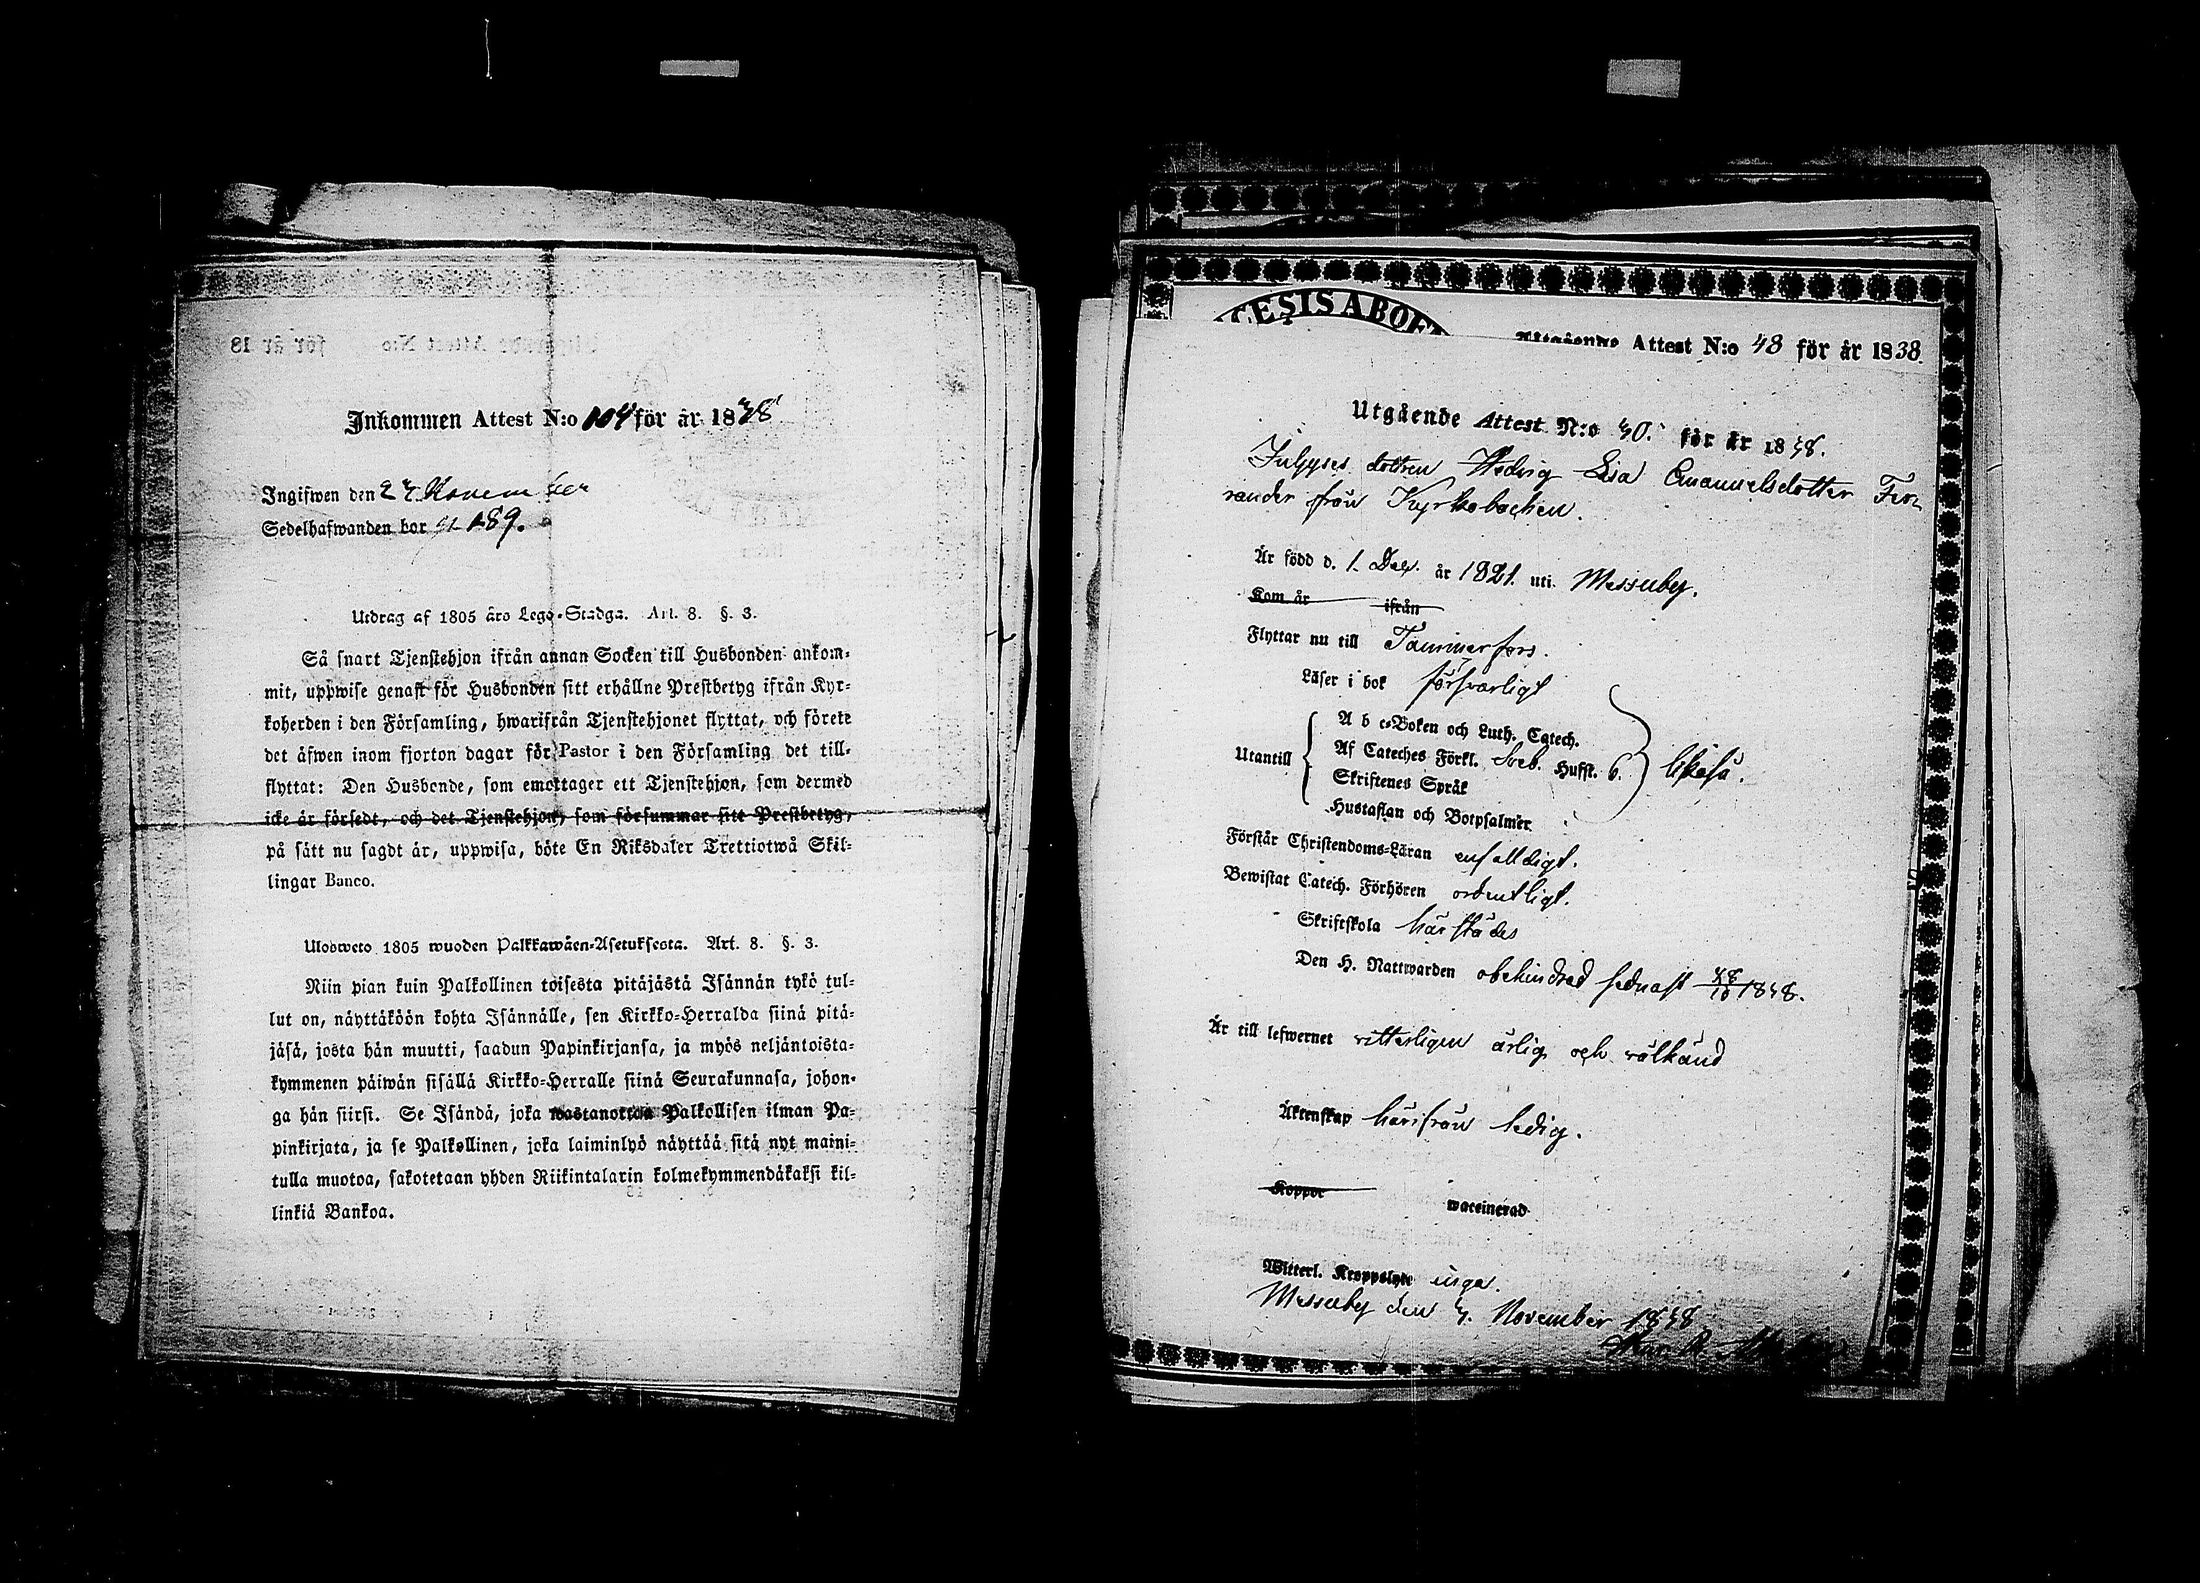 Inkommen Attest N:o 104 för år 1838
Ingifwen den 27 November
Sedelhafwanden bor 189.
Utdrag af 1805 års Lego-Stadga. Art. 8. §. 3.
Så snart Tjenstehjon ifrån annan Socken till Husbonden ankom-
mit, uppwise genast för Husbonden sitt erhållne Prestbetyg ifrån Kyr-
koherden i den Församling, hwarifrån Tjenstehjonet flyttat, och förete
det äfwen inom fjorton dagar för Pastor i den Församling det till-
flyttat: Den Husbonde, som emottager ett Tjenstehjon, som dermed
icke är försedt, och det Tjenstehjon, som försummar sitt Prestbetyg,
på sätt nu sagdt är, uppwisa, böte En Riksdaler Trettiotwå Skil-
lingar Banco.
Ulosweto 1805 wuoden Palkkawäen-Asetuksesta. Art. 8. §. 3.
Niin pian kuin Palkollinen toisesta pitäjästä Isännän tykö tul-
lut on, näyttäköön kohta Isännälle, sen Kirkko-Herralda siinä pitä-
jäsä, josta hän muutti, saadun Papinkirjansa, ja myös neljäntoista-
kymmenen päiwän sisällä Kirkko-Herralle siinä Seurakunnasa, johon-
ga hän siirsi. Se Isändä, joka wastanottaa Palkollisen ilman Pa-
pinkirjata, ja se Palkollinen, joka laiminlyö näyttää sitä nyt maini-
tulla muotoa, sakotetaan yhden Riikintalarin kolmekymmendäkaksi kil-
linkiä Bankoa.
CESIS ABOE
Utgående Attest N:o 48 för år 1838.
Utgående Attest N:o 30. för år 1838.
dottren Hedvig Lisa Emanuelsdotter Fer-
rander från Kyrkobacken.
Är född d. 1. Dec. år 1821. uti Messuby.
Kom år ifrån
Flyttar nu till Tammerfors.
Läser i bok försvarligt
Utantill
A b c-Boken och Luth. Catech.
Af Cateches Förkl. Sveb. Hufst. 6.
Skriftenes Språk
Hustaflan och Botpsalmer
likaså.
Förstår Christendoms-Läran enfalldigt.
Bewistat Catech. Förhören ordentligt.
Skriftskola härstädes
Den H. Nattwarden obehindrad sednast 28/10 1838.
Är till lefwernet vitterligen ärlig och välkänd
Äktenskap härifrån ledig.
Koppor waccinerad
Witterl. Kroppslyte inga.
Messuby den 3. November 1838